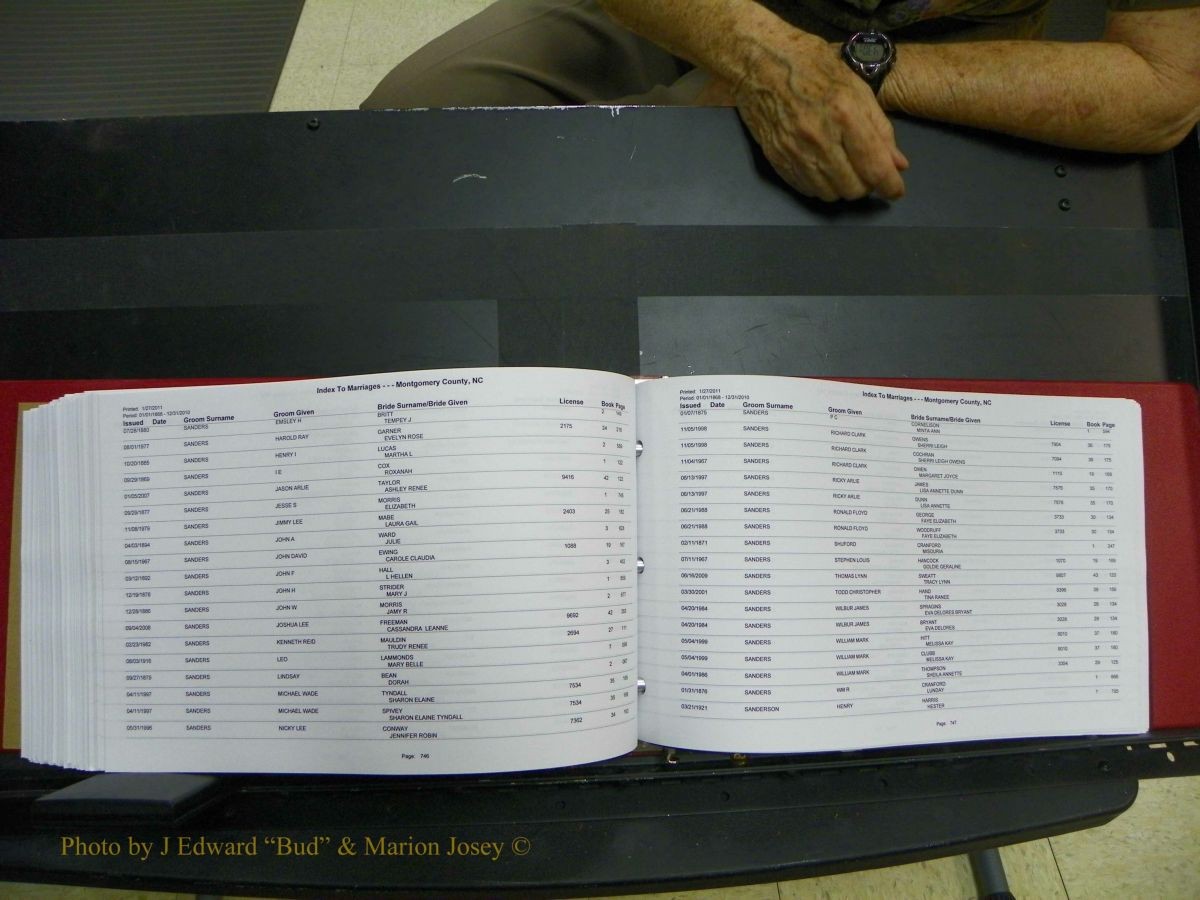 Index To Marriages - - - Montgomery County, NC
Printed: 1/27/2011
Period: 01/01/1868 - 12/31/2010
Issued Date Groom Surname Groom Given Bride Surname/Bride Given License Book Page
07/28/1880 SANDERS EMSLEY H BRITT 2
TEMPEY J
08/01/1977 SANDERS HAROLD RAY GARNER 2175 24
EVELYN ROSE
10/20/1885 SANDERS HENRY I LUCAS 2
MARTHA L
09/29/1869 SANDERS I E COX 1
ROXANAH
01/05/2007 SANDERS JASON ARLIE TAYLOR 9416 42
ASHLEY RENEE
09/29/1877 SANDERS JESSE S MORRIS 1
ELIZABETH
11/08/1979 SANDERS JIMMY LEE MABE 2403 25
LAURA GAIL
04/03/1894 SANDERS JOHN A WARD 3
JULIE
08/15/1967 SANDERS JOHN DAVID EWING 1088 19
CAROLE CLAUDIA
03/12/1892 SANDERS JOHN F HALL 3
L HELLEN
12/19/1876 SANDERS JOHN H STRIDER 1
MARY J
12/28/1886 SANDERS JOHN W MORRIS 2
JAMY R
09/04/2008 SANDERS JOSHUA LEE FREEMAN 9692 42
CASSANDRA LEANNE
03/23/1982 SANDERS KENNETH REID MAULDIN 2694 27
TRUDY RENEE
08/03/1916 SANDERS LEO LAMMONDS 7
MARY BELLE
09/27/1879 SANDERS LINDSAY BEAN 2
DORAH
04/11/1997 SANDERS MICHAEL WADE TYNDALL 7534 35
SHARON ELAINE
04/11/1997 SANDERS MICHAEL WADE SPIVEY 7534 35
SHARON ELAINE TYNDALL
05/31/1996 SANDERS NICKY LEE CONWAY 7362 34
JENNIFER ROBIN
Page: 746
Printed: 1/27/2011
Period: 01/01/1868 - 12/31/2010
Index To Marriages - - - Montgomery County, NC
Issued Date Groom Surname Groom Given Bride Surname/Bride Given License Book Page
01/07/1875 SANDERS P C CORNELISON 1
MINTA ANN
11/05/1998 SANDERS RICHARD CLARK OWENS 7904 36 175
SHERRI LEIGH
11/05/1998 SANDERS RICHARD CLARK COCHRAN 7904 36 175
SHERRI LEIGH OWENS
11/04/1967 SANDERS RICHARD CLARK OWEN 1110 19
MARGARET JOYCE
06/13/1997 SANDERS RICKY ARLIE JAMES 7575 35 170
LISA ANNETTE DUNN
06/13/1997 SANDERS RICKY ARLIE DUNN 7575 35 170
LISA ANNETTE
06/21/1988 SANDERS RONALD FLOYD GEORGE 3733 30 134
FAYE ELIZABETH
06/21/1988 SANDERS RONALD FLOYD WOODRUFF 3733 30 134
FAYE ELIZABETH
02/11/1871 SANDERS SHUFORD CRANFORD 1 247
MISOURIA
07/11/1967 SANDERS STEPHEN LOUIS HANCOCK 1070 19
GOLDIE GERALINE
06/16/2009 SANDERS THOMAS LYNN SWEATT 9807 43 122
TRACY LYNN
03/30/2001 SANDERS TODD CHRISTOPHER HAND 8396 39
TINA RANEE
04/20/1984 SANDERS WILBUR JAMES SPRAGINS 3028 28 134
EVA DELORES BRYANT
04/20/1984 SANDERS WILBUR JAMES BRYANT 3028 28 134
EVA DELORES
05/04/1999 SANDERS WILLIAM MARK HITT 8010 37 180
MELISSA KAY
05/04/1999 SANDERS WILLIAM MARK CLUBB 8010 37 180
MELISSA KAY
04/01/1986 SANDERS WILLIAM MARK THOMPSON 3304 29 125
SHEILA ANNETTE
01/31/1876 SANDERS WM R CRANFORD 1
LUNDAY
03/21/1921 SANDERSON HENRY HARRIS 7
HESTER
Page: 747
Photo by J Edward “Bud” & Marion Josey ©